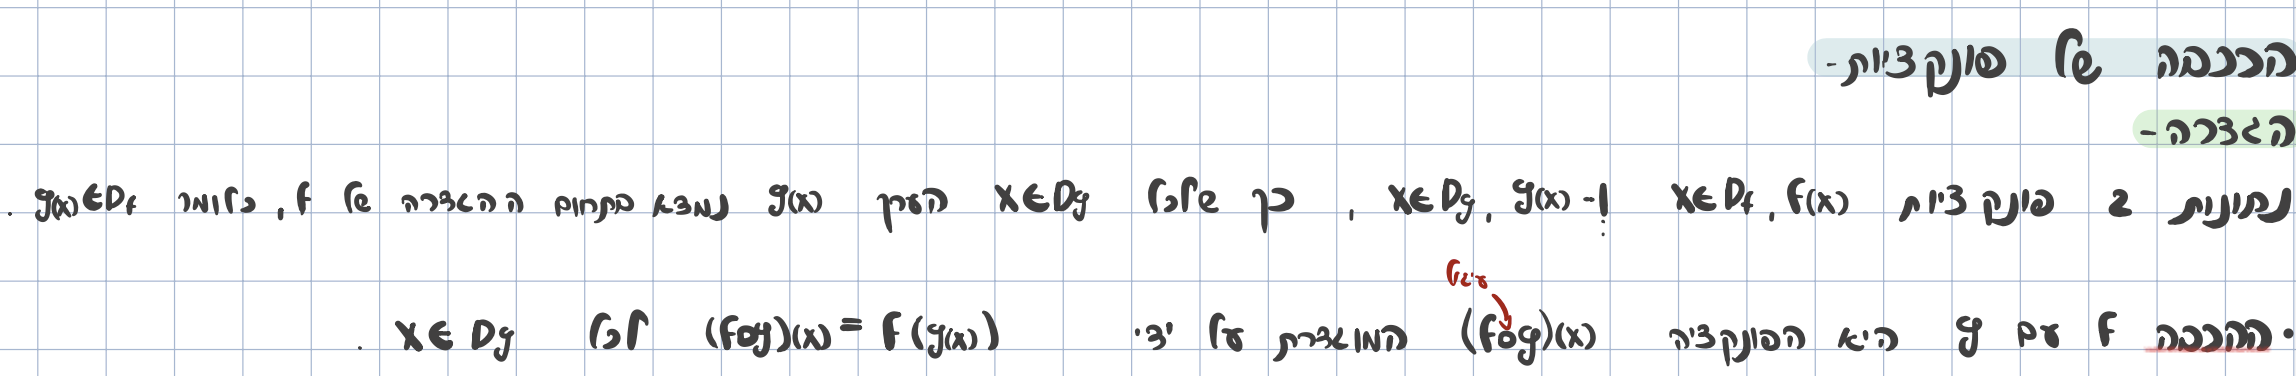 הרכבה של פונקציות-
הגדרה-
נתונות 2 פונקציות x∈Df , f(x) ו- x∈Dg , g(x) , כך שלכל x∈Dg הערך g(x) נמצא בתחום ההגדרה של f , כלומר g(x)∈Df .
עיגול
• ההרכבה f עם g היא הפונקציה (f∘g)(x) המוגדרת על ידי (f∘g)(x) = f(g(x)) לכל x∈Dg .